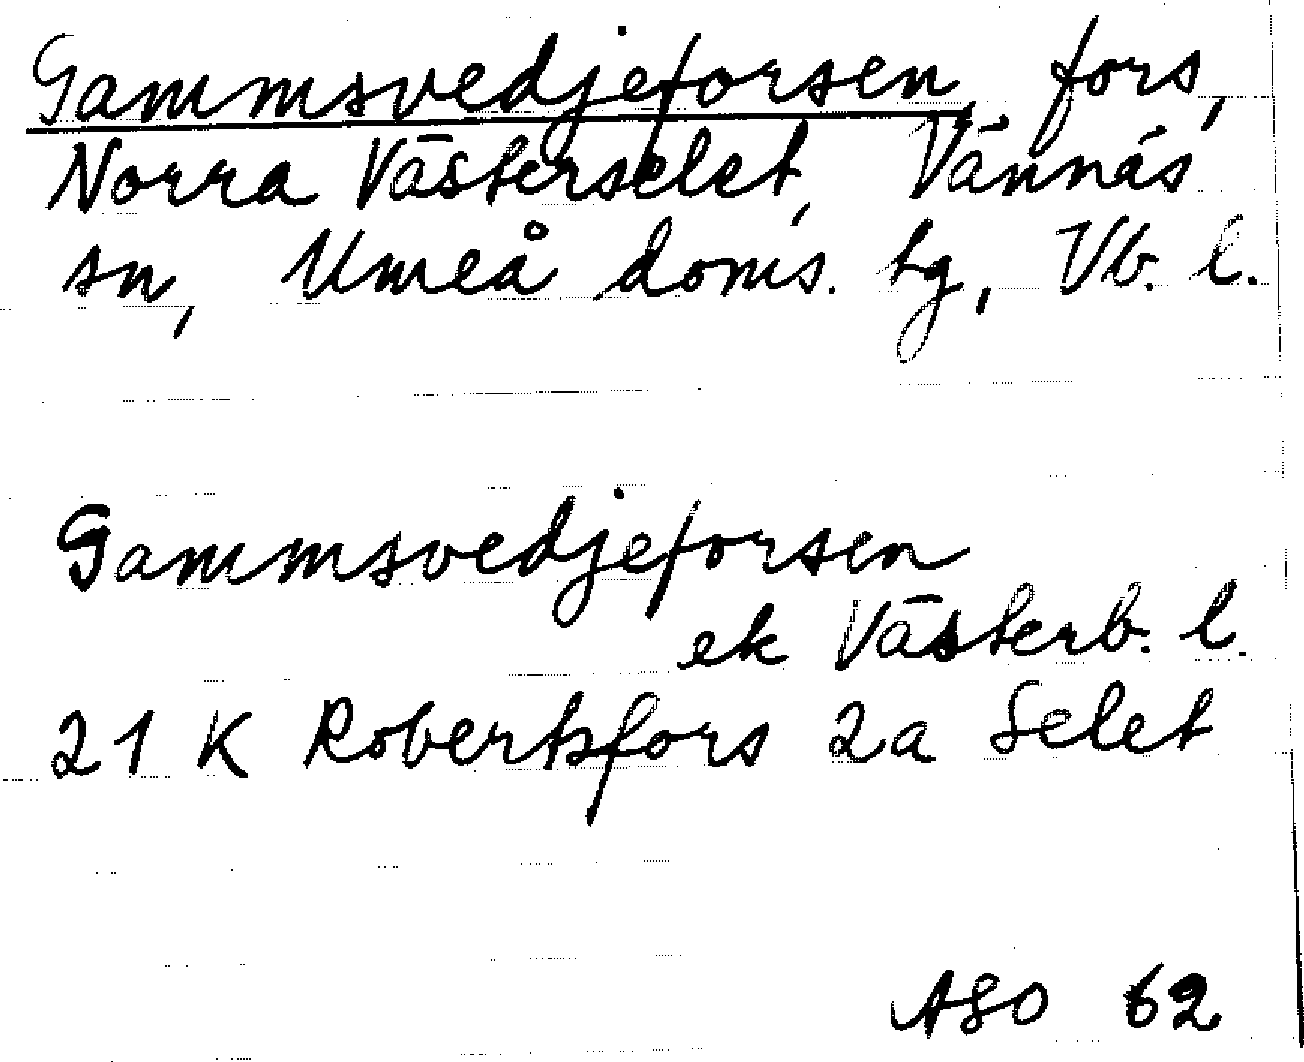 Gammsvedjeforsen, fors,
Norra Västerselet, Vännäs
sn, Umeå doms. tg, Vb. l.
Gammsvedjeforsen
ek Västerb. l.
21 K Robertsfors 2a Selet
ASO 62